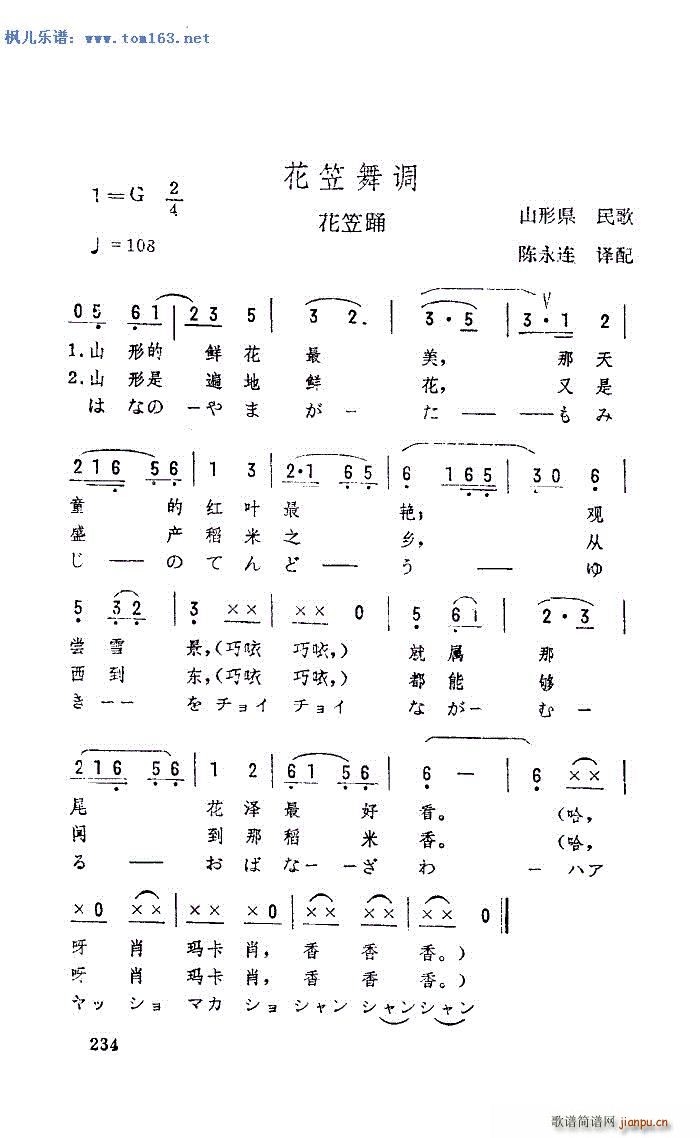 枫儿乐谱: www.tom163.net
花笠舞调
1=G 2/4
花笠踊
山形県 民歌
♩=108
陈永连 译配
0 5 6 1 | 2 3 5 | 3 2. | 3·5 | 3·1 2 |
1.山 形的 鲜花 最 美, 那天
2.山 形是 遍地 鲜 花, 又是
は なの ーやま が ー た ー ー もみ
2 1 6 5 6 | 1 3 | 2·1 6 5 | 6 1 6 5 | 3 0 6 |
童 的红叶最 艳; 观
盛 产稻米之 乡, 从
じ ー ー のてんど ー ー う ー ー ゆ
5 3 2 | 3 ×× | ×× 0 | 5 6 i | 2·3 |
尝雪 景,(巧咳 巧咳,) 就属 那
西到 东,(巧咳 巧咳,) 都能 够
き ー ー をチョイ チョイ ながー む ー
2 1 6 5 6 | 1 2 | 6 1 5 6 | 6 — | 6 ×× |
尾 花泽最 好 看。 (哈,
闻 到那稻 米 香。 (哈,
る ー ー おばな ー ー ざ わ ー ハア
× 0 ×× | ×× ×× | ×× ×× | ×× 0 ‖
呀 肖 玛卡肖, 香 香 香。)
呀 肖 玛卡肖, 香 香 香。)
ヤッ ショ マカ ショ シャン シャンシャン
234
歌谱简谱网 jianpu.cn